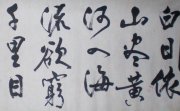 白日依
山尽黄
河入海
流欲窮
千里目